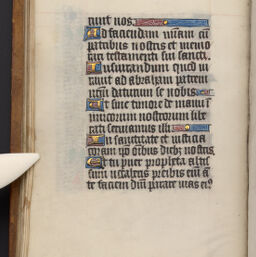 runt nos.
Ad faciendam miam cū
patribus nostris et memo
rari testamenti sui sancti.
Iusiurandum quod iu
rauit ad abraham patrem
nrm daturum se nobis.
Ut sine timore de manu i
nimicorum nostrorum libe
rati seruiamus illi
In sanctitate et iusticia
coram ipo oībus diebz nostris
Et tu puer propheta altis
simi uocaberis preibis eim a
te faciem dni parare uias ei⁹